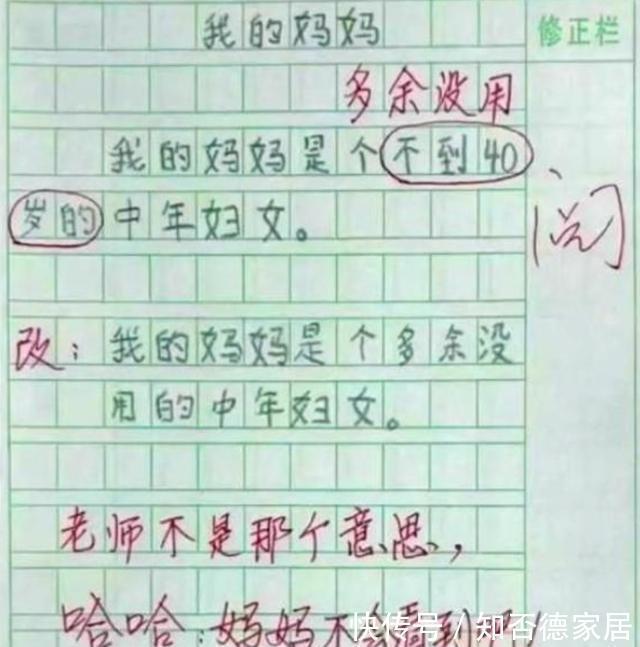 我的妈妈
修正栏
多余没用
我的妈妈是个不到40
岁的中年妇女。
阅
改：我的妈妈是个多余没
用的中年妇女。
老师不是那个意思，
哈哈，妈妈不会看到
快传号／知否德家居